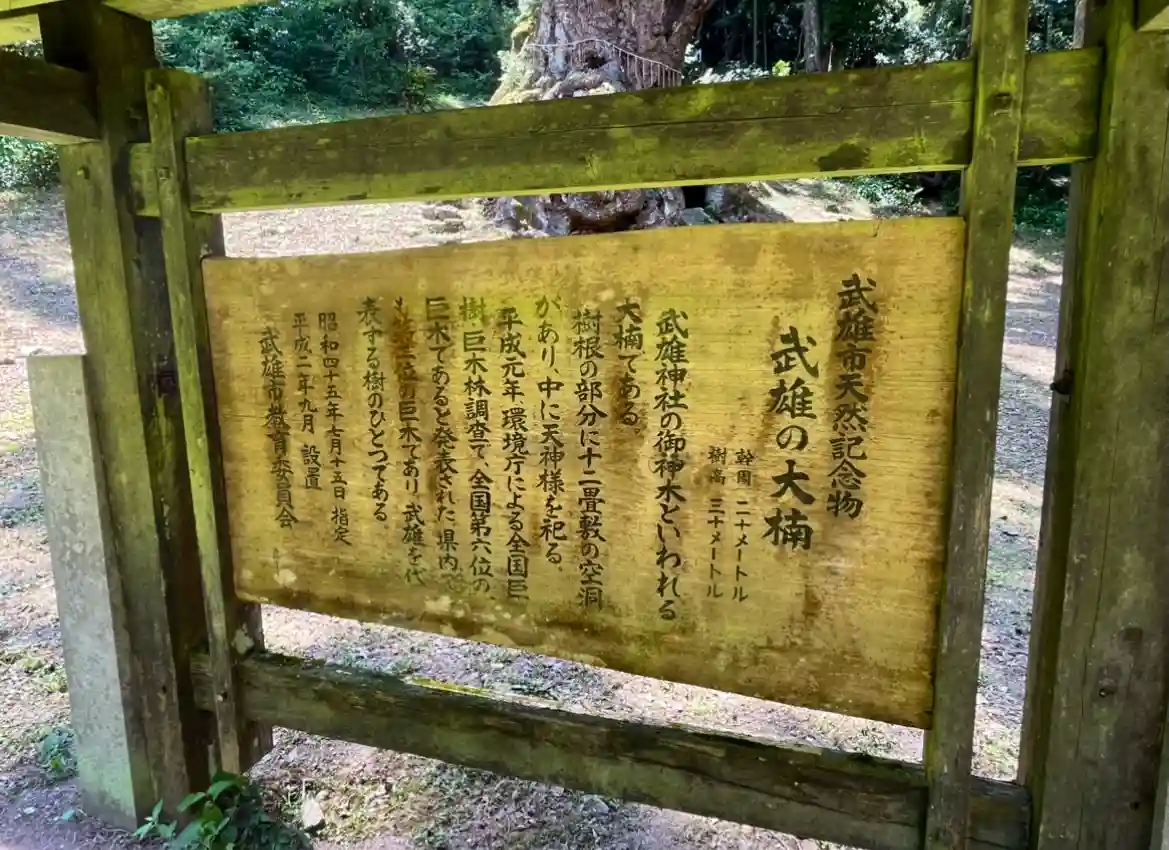 武雄市天然記念物
武雄の大楠
幹囲 二十メートル
樹高 三十メートル
武雄神社の御神木といわれる
大楠である
樹根の部分に十二畳敷の空洞
があり、中に天神様を祀る、
平成元年、環境庁による全国巨
樹巨木林調査で、全国第六位の、
巨木であると発表された、県内で
も第二位の巨木であり、武雄を代
表する樹のひとつである
昭和四十五年七月十五日 指定
平成二年九月 設置
武雄市教育委員会